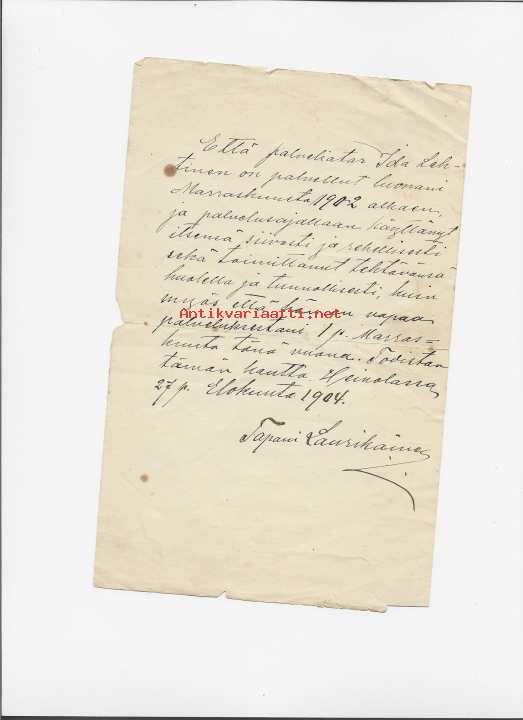 Että palveliatar Ida Leh-
tinen on palvellut luonani
Marraskuusta 1902 alkaen,
ja palvelusajallaan käyttänyt
itsensä siivosti ja rehellisesti
sekä toimittanut tehtävänsä
huolella ja tunnollisesti, kuin
myös että hän on vapaa
Antikvariaatti.net
palveluksestani 1 p. Marras=
kuuta tänä vuonna. Todistan
tämän kautta. Heinolassa
27 p. Elokuuta 1904.
Tapani Laurikainen